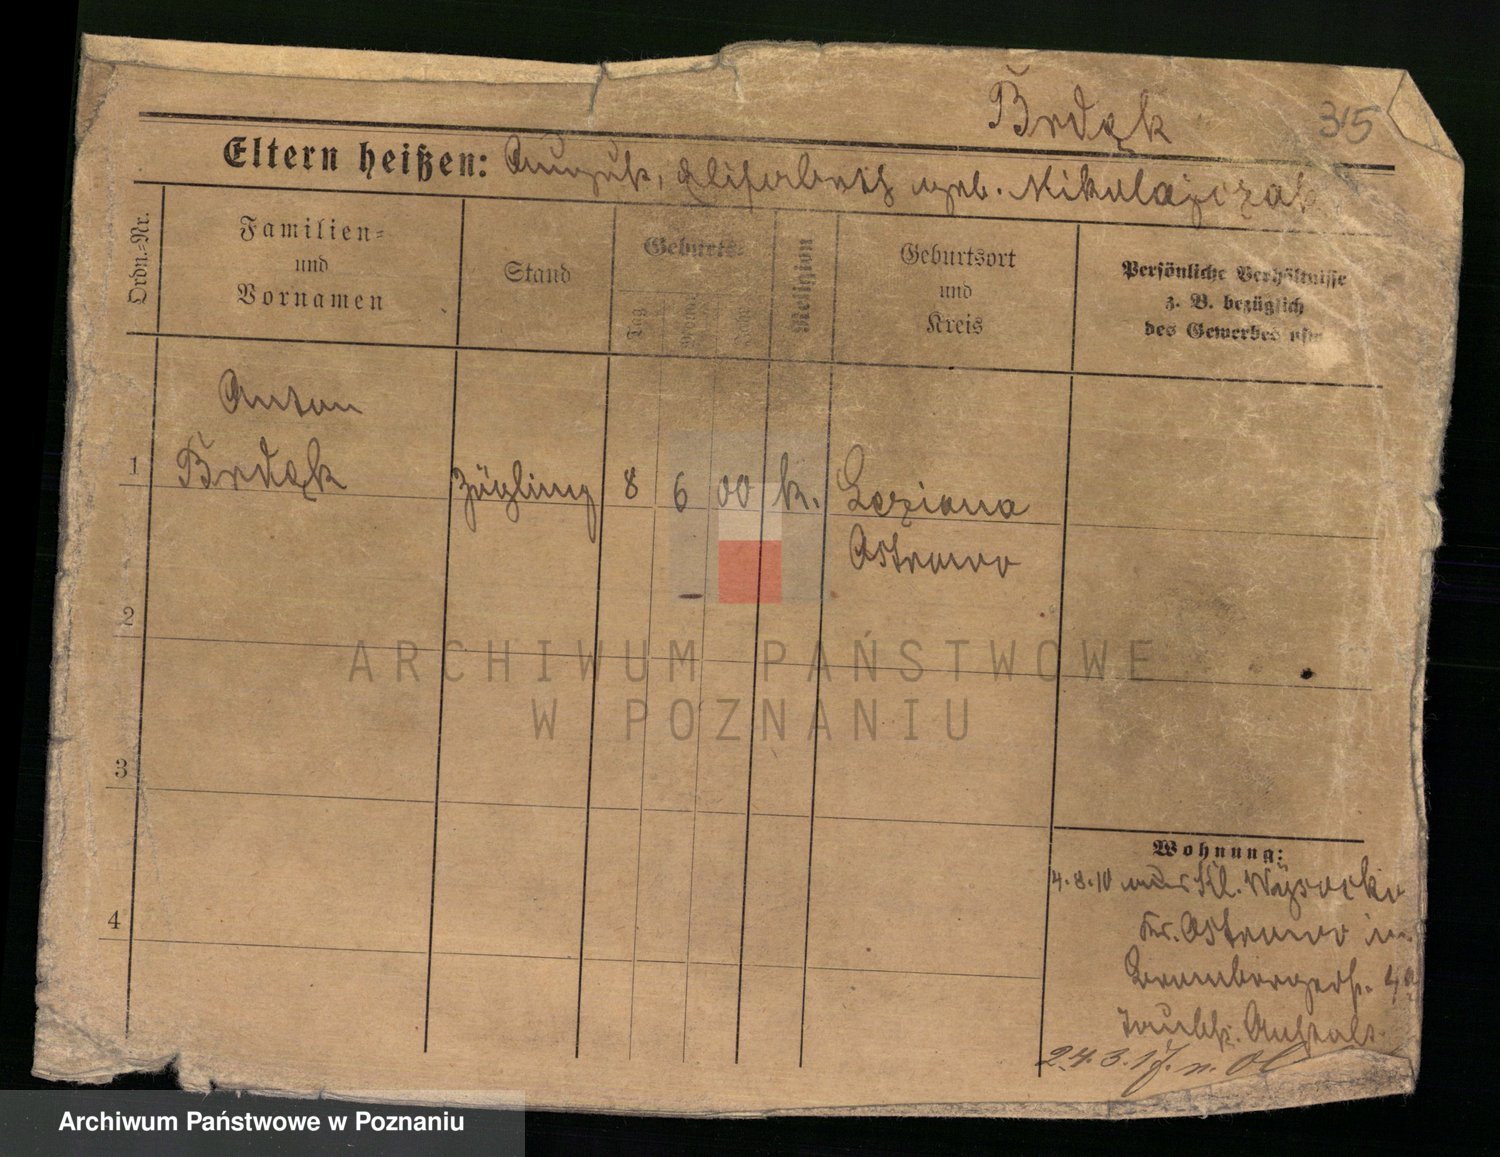 Brdęk
315
Eltern heißen: August, Elisabeth geb. Mikolajczak
Ordn.=Nr.
Familien=
und
Vornamen
Stand
Geburts=
Tag
Monat
Jahr
Religion
Geburtsort
und
Kreis
Persönliche Verhältnisse
z. B. bezüglich
des Gewerbes usw.
1
Anton
Brdęk
Zögling
8
6
00
k.
Leziona
Ostrowo
2
3
4
Wohnung:
4.8.10 Kl. Wysocko
Kr. Ostrowo in
Brombergerstr.
Taubst. Anstalt.
24.3.17. n.
ARCHIWUM PAŃSTWOWE
W POZNANIU
Archiwum Państwowe w Poznaniu